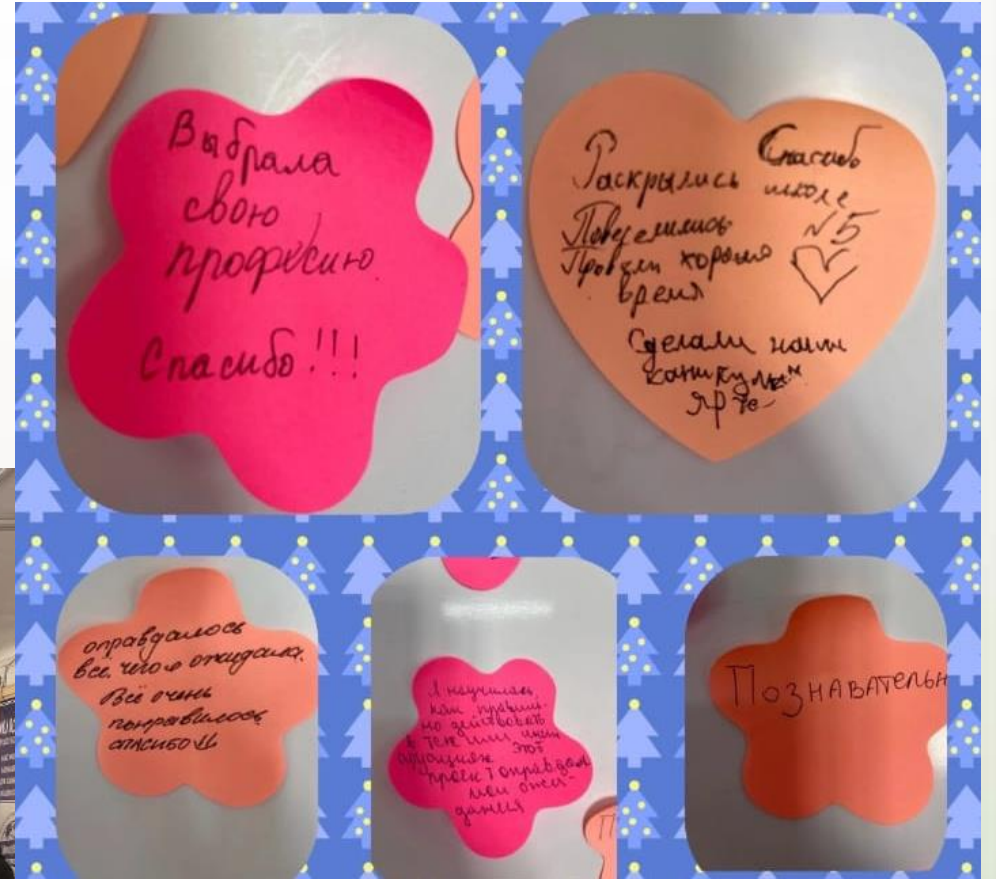 Выбрала
свою
профессию
Спасибо!!!
Раскрылись
Повеселились
Провели хорошо
время
Спасибо
школе
№5
Сделали наши
каникулы
ярче
оправдалось
всё, чего я ожидала.
Всё очень
понравилось
спасибо
Я научилась,
как правиль-
но действовать
в тех или иных
ситуациях этот
проект оправдал
мои ожи-
дания
Познавательн
П